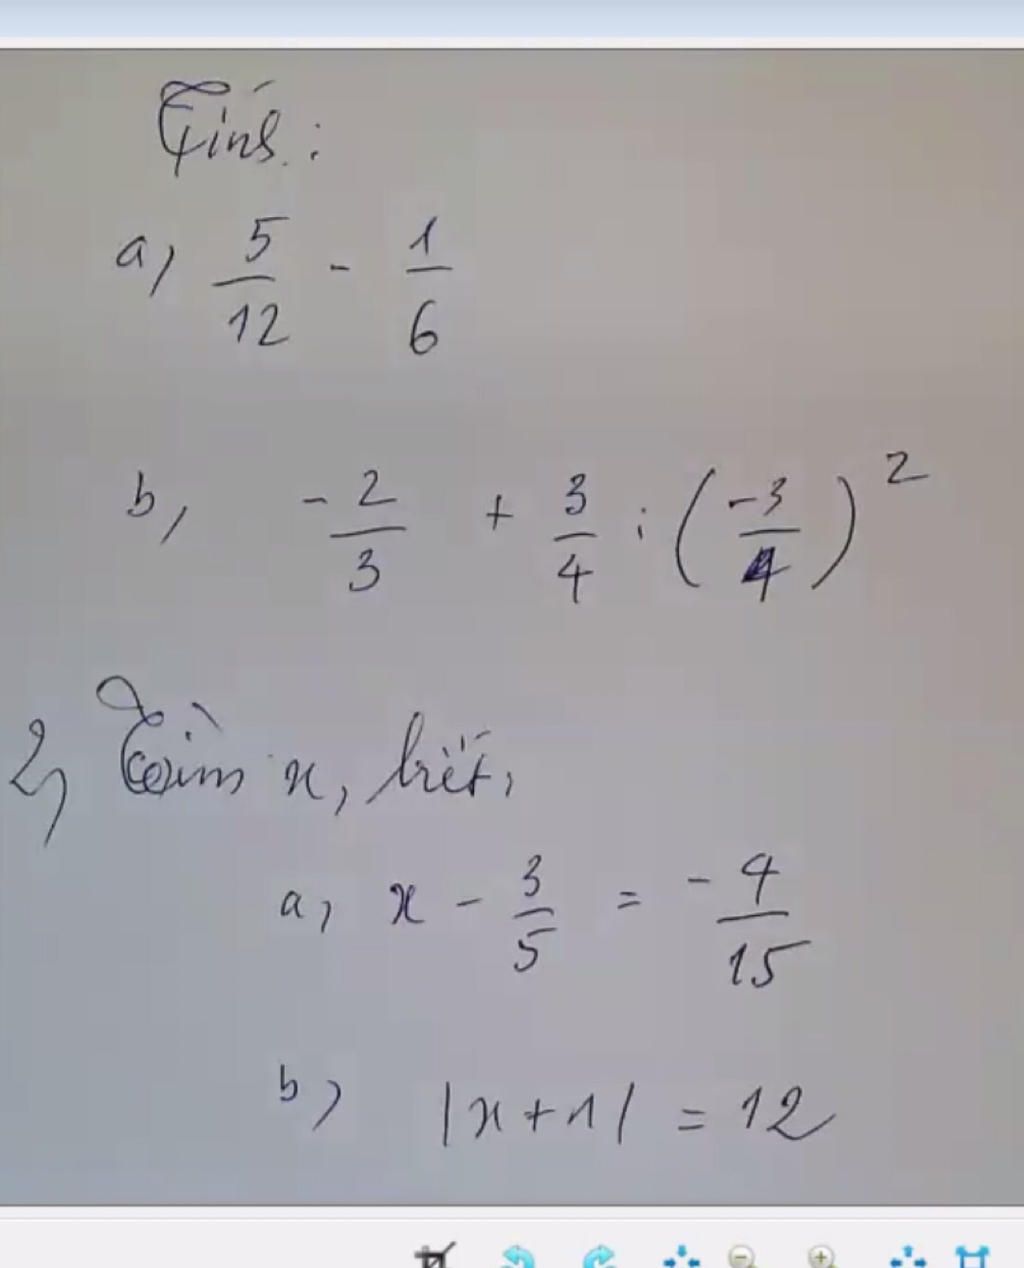 Tính :
a, 5/12 - 1/6
b, -2/3 + 3/4 : (-3/4)²
2, Tìm x, biết,
a, x - 3/5 = -4/15
b, |x+1| = 12